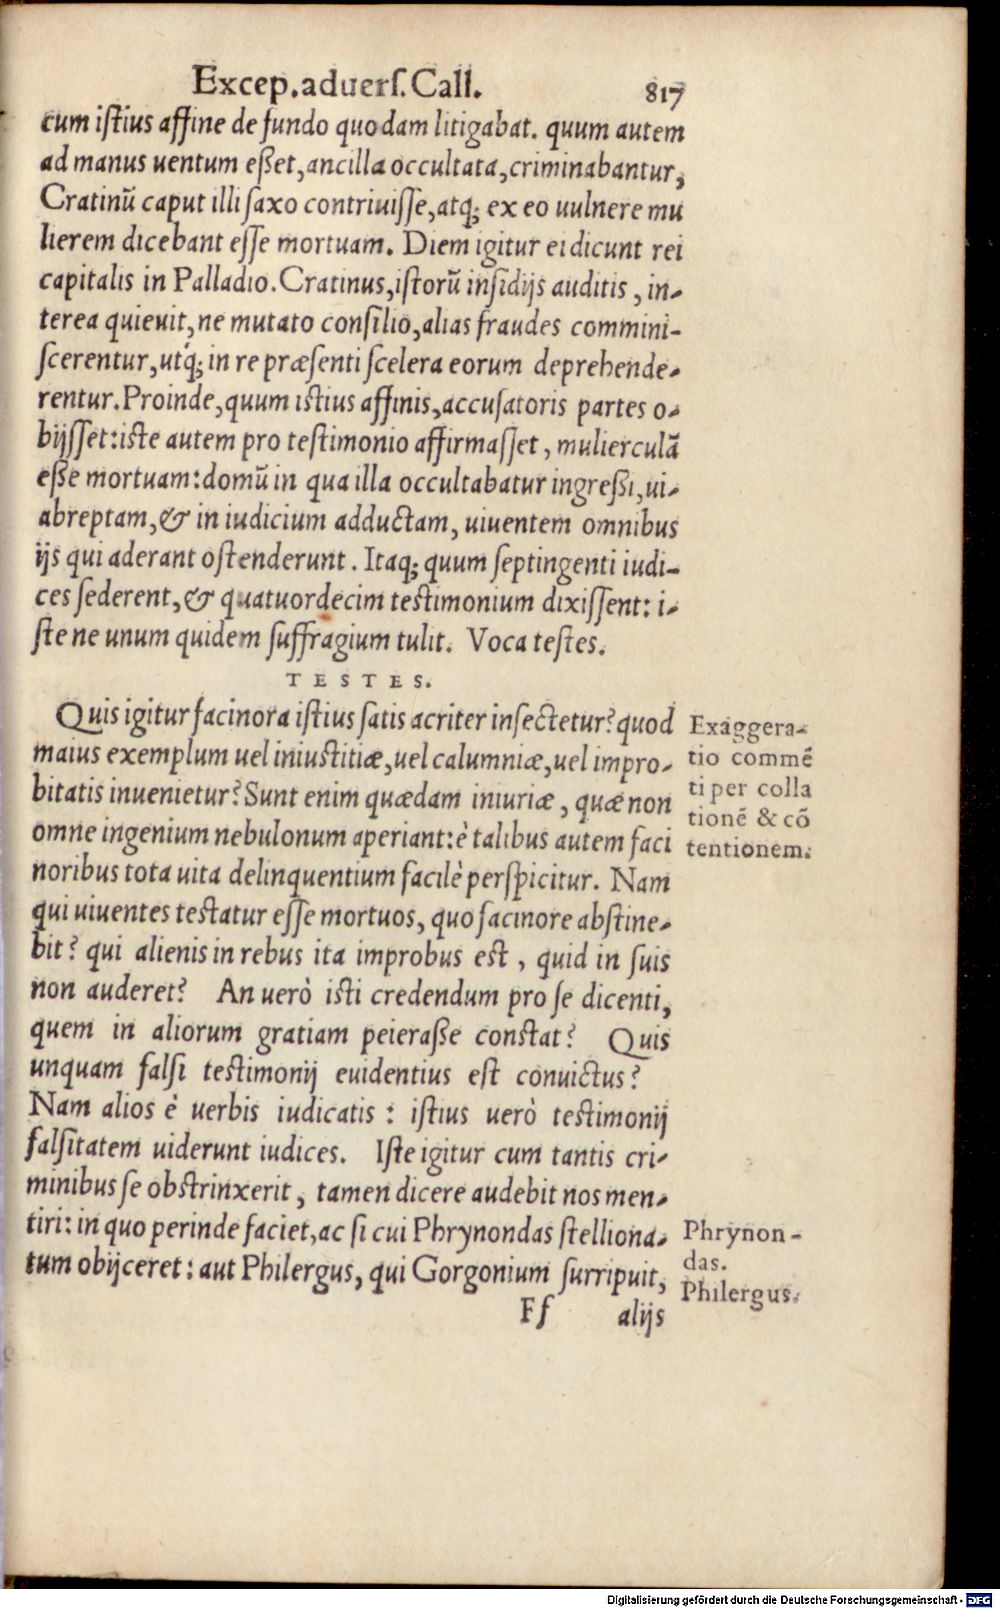 Excep. aduerſ. Call. 817
cum iſtius affine de fundo quodam litigabat. quum autem
ad manus uentum eßet, ancilla occultata, criminabantur,
Cratinū caput illi ſaxo contriuiſſe, atq; ex eo uulnere mu
lierem dicebant eſſe mortuam. Diem igitur ei dicunt rei
capitalis in Palladio. Cratinus, iſtorū inſidijs auditis, in-
terea quieuit, ne mutato conſilio, alias fraudes commini-
ſcerentur, utq́; in re præſenti ſcelera eorum deprehende-
rentur. Proinde, quum iſtius affinis, accuſatoris partes o-
bijſſet: iſte autem pro teſtimonio affirmaſſet, mulierculā
eße mortuam: domū in qua illa occultabatur ingreßi, ui-
abreptam, & in iudicium adductam, uiuentem omnibus
ijs qui aderant oſtenderunt. Itaq; quum ſeptingenti iudi-
ces ſederent, & quatuordecim teſtimonium dixiſſent: i-
ſte ne unum quidem ſuffragium tulit. Voca teſtes.
TESTES.
Quis igitur facinora iſtius ſatis acriter inſectetur? quod
maius exemplum uel iniuſtitiæ, uel calumniæ, uel impro-
bitatis inuenietur? Sunt enim quædam iniuriæ, quæ non
omne ingenium nebulonum aperiant: è talibus autem faci
noribus tota uita delinquentium facilè perſpicitur. Nam
qui uiuentes teſtatur eſſe mortuos, quo facinore abſtine-
bit? qui alienis in rebus ita improbus eſt, quid in ſuis
non auderet? An uerò iſti credendum pro ſe dicenti,
quem in aliorum gratiam peieraße conſtat? Quis
unquam falſi teſtimonij euidentius eſt conuictus?
Nam alios è uerbis iudicatis: iſtius uerò teſtimonij
falſitatem uiderunt iudices. Iſte igitur cum tantis cri-
minibus ſe obſtrinxerit, tamen dicere audebit nos men-
tiri: in quo perinde faciet, ac ſi cui Phrynondas ſtelliona-
tum obijceret: aut Philergus, qui Gorgonium ſurripuit,
Ff alijs
Exaggera-
tio commē
ti per colla
tionē & cō
tentionem.
Phrynon-
das.
Philergus.
Digitalisierung gefördert durch die Deutsche Forschungsgemeinschaft - DFG